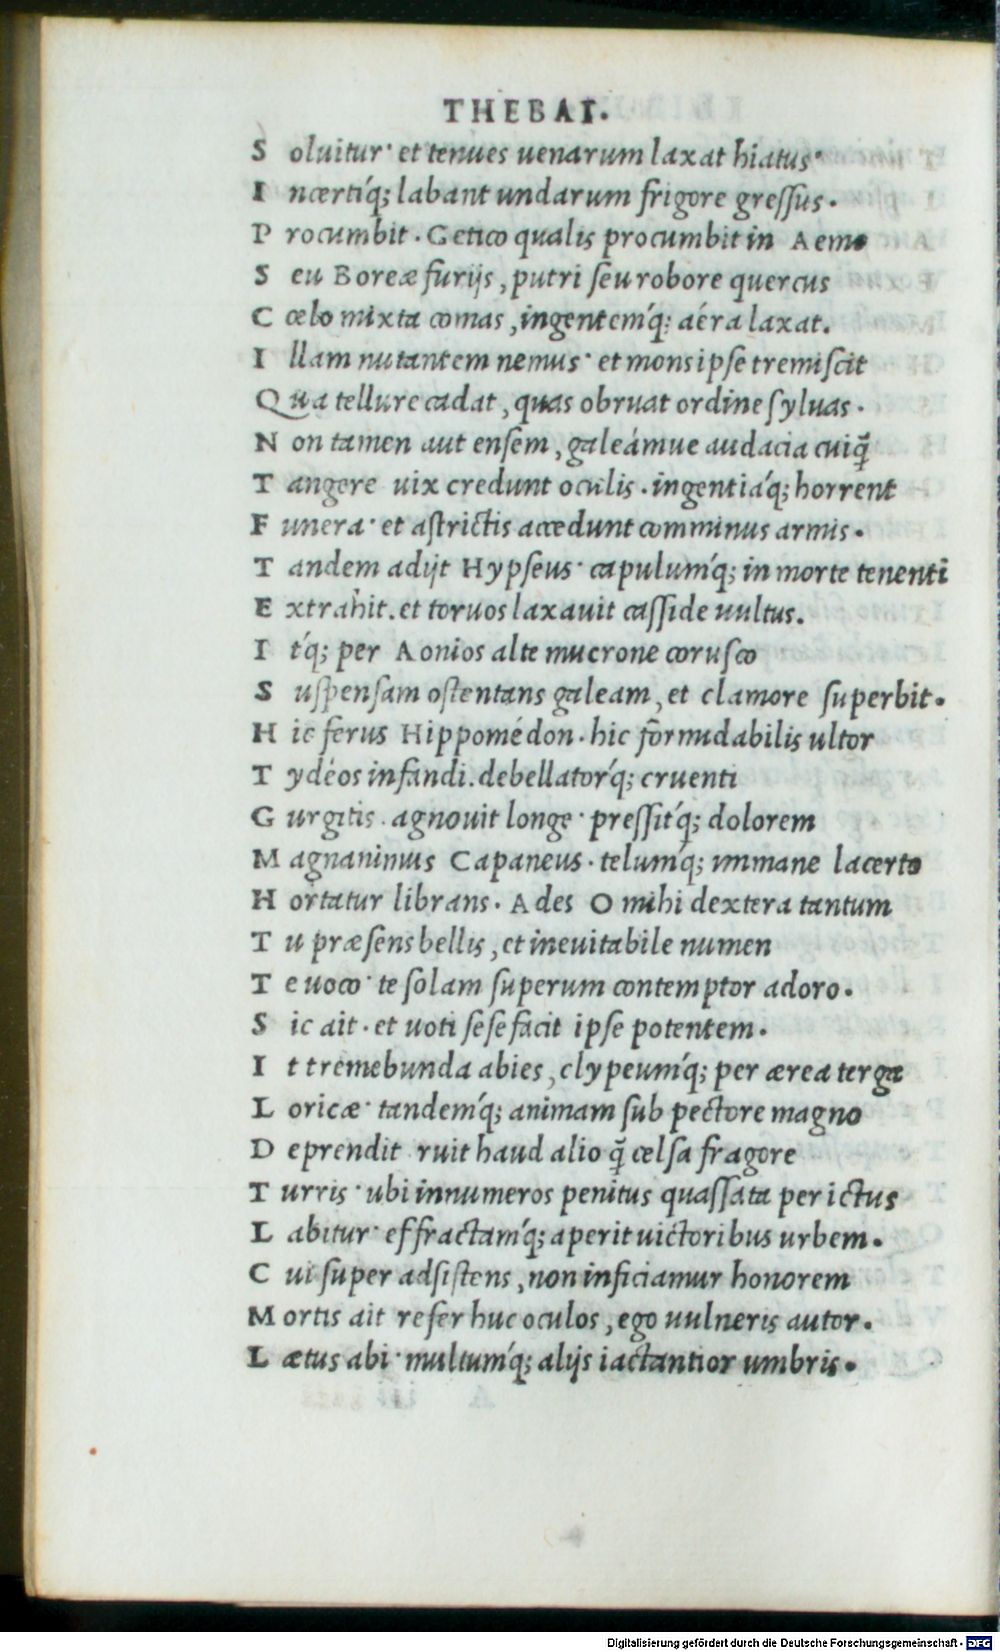 THEBAI.
S oluitur· et tenues uenarum laxat hiatus·
I ncertíq; labant undarum frigore gressus.
P rocumbit. Getico qualis procumbit in Aemo
S eu Boreæ furijs, putri seu robore quercus
C œlo mixta comas, ingentémq; aéra laxat.
I llam nutantem nemus· et mons ipse tremiscit
Q ua tellure cadat, quas obruat ordine syluas.
N on tamen aut ensem, galeámue audacia cuiq̃
T angere uix credunt oculis. ingentiáq; horrent
F unera· et astrictis accedunt comminus armis.
T andem adijt Hypseus· capulúmq; in morte tenenti
E xtrahit. et toruos laxauit casside uultus.
I t'q; per Aonios alte mucrone corusco
S uspensam ostentans galeam, et clamore superbit.
H ic ferus Hippomédon. hic formidabilis ultor
T ydéos infandi. debellatórq; cruenti
G urgitis. agnouit longe· pressítq; dolorem
M agnanimus Capaneus· telúmq; immane lacerto
H ortatur librans. Ades O mihi dextera tantum
T u præsens bellis, et ineuitabile numen
T e uoco· te solam superum contemptor adoro.
S ic ait. et uoti sese facit ipse potentem.
I t tremebunda abies, clypeúmq; per ærea terga
L oricæ· tandémq; animam sub pectore magno
D eprendit ruit haud alio q̃ celsa fragore
T urris· ubi innumeros penitus quassata per ictus
L abitur· effractámq; aperit uictoribus urbem.
C ui super adsistens, non inficiamur honorem
M ortis ait refer huc oculos, ego uulneris autor.
L ætus abi· multúmq; alijs iactantior umbris.
Digitalisierung gefördert durch die Deutsche Forschungsgemeinschaft - DFG